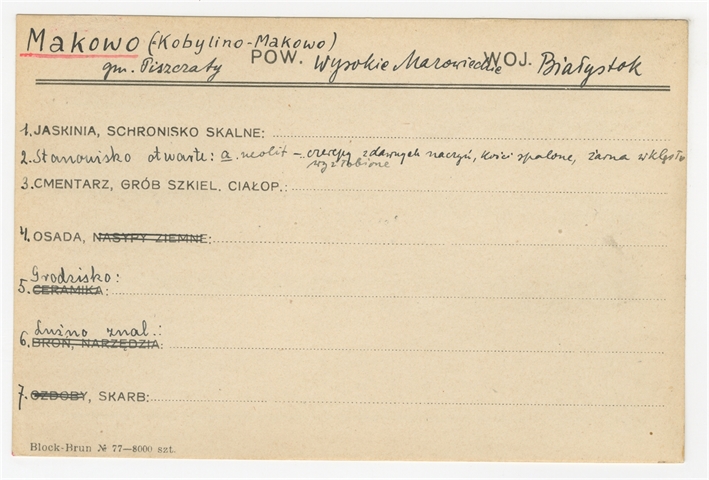 Makowo (-Kobylino-Makowo)
gm. Piszczaty POW. Wysokie Mazowieckie WOJ. Białystok
1. JASKINIA, SCHRONISKO SKALNE:
2. Stanowisko otwarte: a. neolit – czerepy z dawnych naczyń, kości spalone, żarna wklęsło
wyżłobione
3. CMENTARZ, GRÓB SZKIEL. CIAŁOP.:
4. OSADA, NASYPY ZIEMNE:
Grodzisko:
5. CERAMIKA:
Luźno znal.:
6. BROŃ, NARZĘDZIA:
7. OZDOBY, SKARB:
Block-Brun № 77—8000 szt.